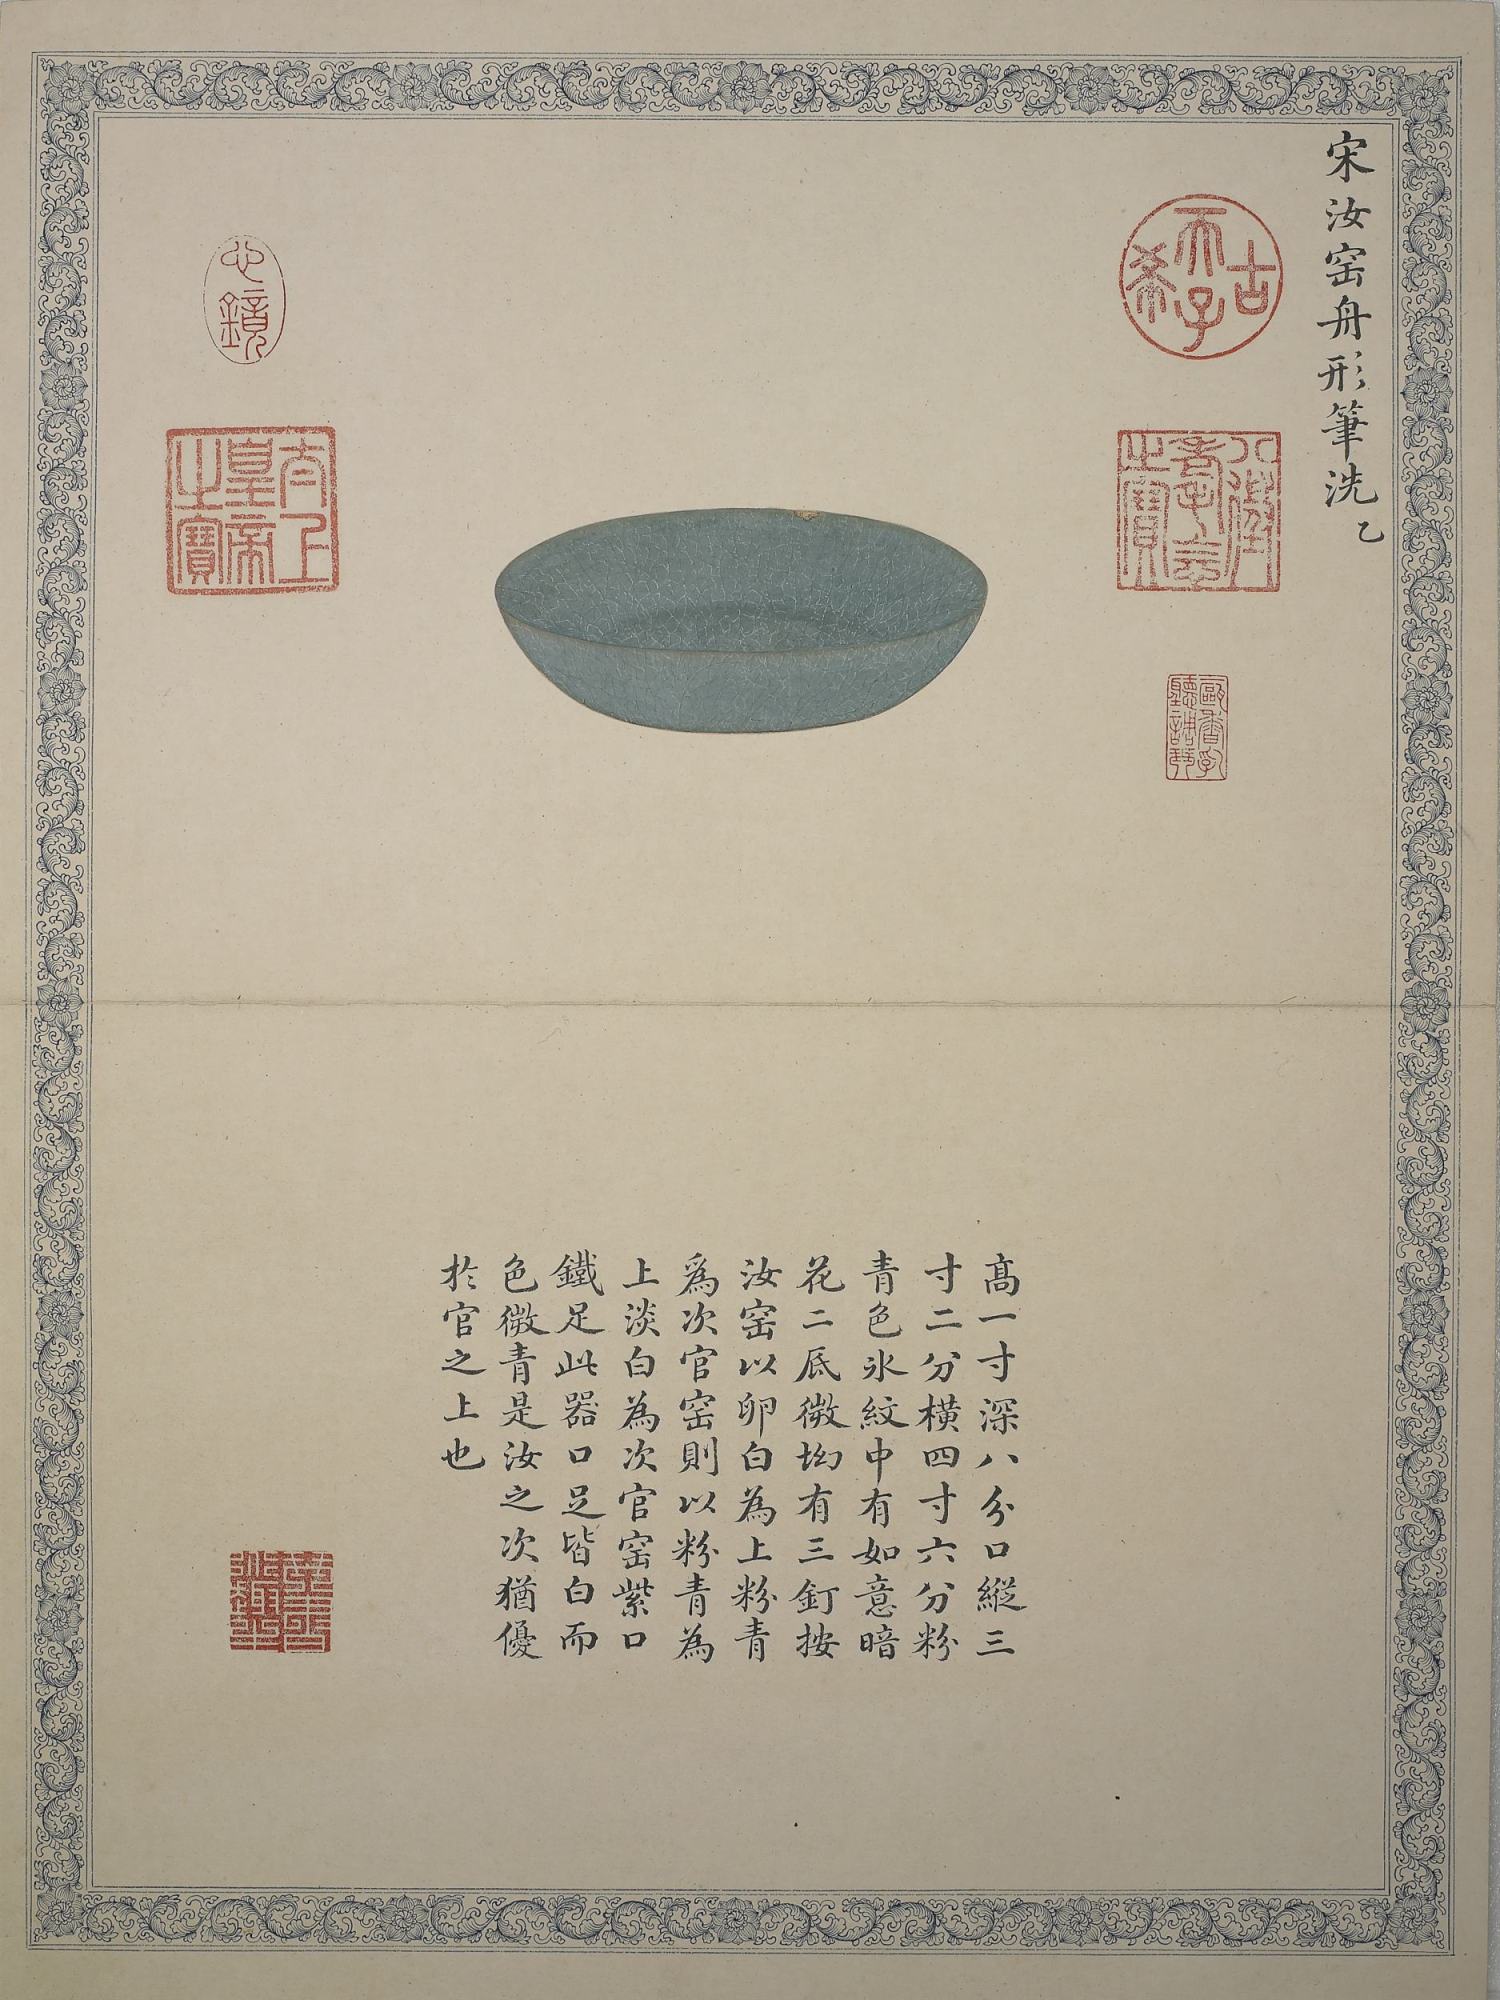 宋汝窑舟形筆洗 乙
古
天子
希
八徵
耄念
之寶
甌香乳
聽調琴
心鏡
太上
皇帝
之寶
高一寸深八分口縱三
寸二分橫四寸六分粉
青色氷紋中有如意暗
花二底微坳有三釘按
汝窑以卵白為上粉青
爲次官窑則以粉青為
上淡白為次官窑紫口
鐵足此器口足皆白而
色微青是汝之次猶優
於官之上也